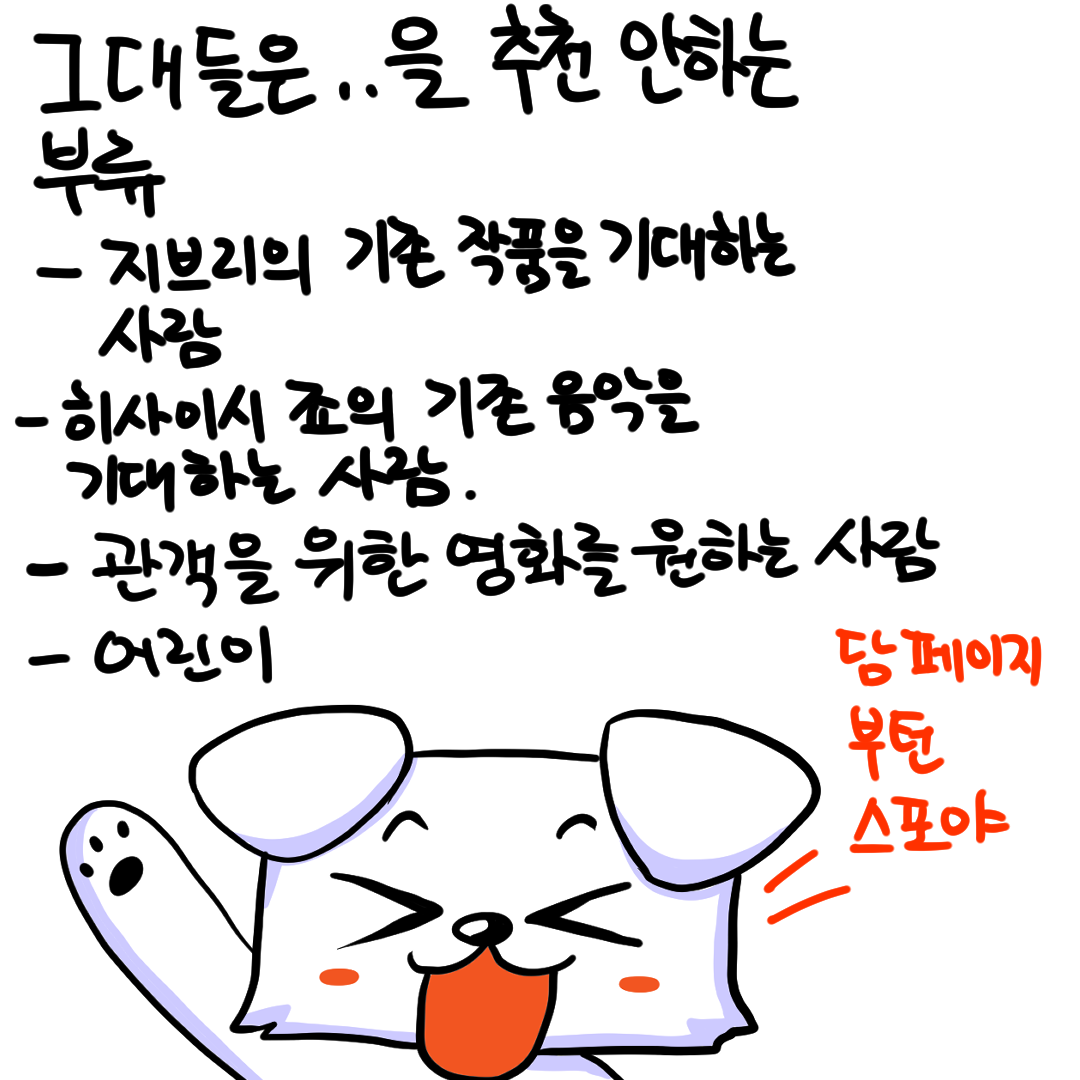 그대들은..을 추천 안하는
부류
- 지브리의 기존 작품을 기대하는
사람
- 히사이시 죠의 기존 음악을
기대하는 사람.
- 관객을 위한 영화를 원하는 사람
- 어린이
담페이지
부턴
스포야